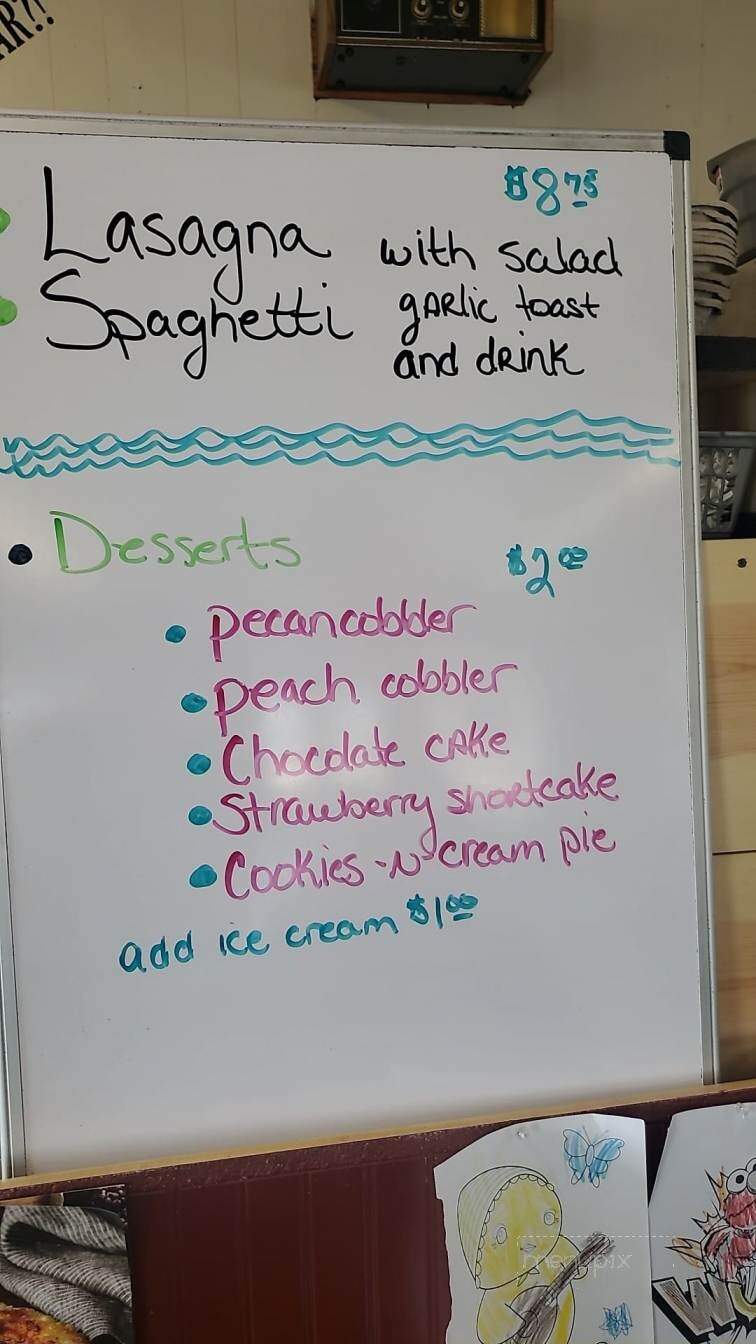 AR?!
$8.75
Lasagna with salad
Spaghetti garlic toast
and drink
Desserts $2.00
pecan cobbler
peach cobbler
Chocolate cake
Strawberry shortcake
Cookies-N-cream pie
add ice cream $1.00
menupix